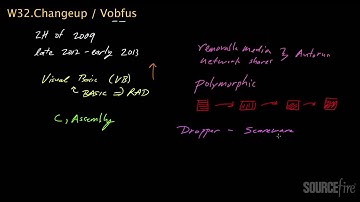 W32.Changeup / Vobfus
2H of 2009
late 2012 - early 2013
Visual Basic (VB)
BASIC ⇒ RAD
C, Assembly
removable media & Autorun
network shares
polymorphic
Dropper - Scareware
SOURCEfire